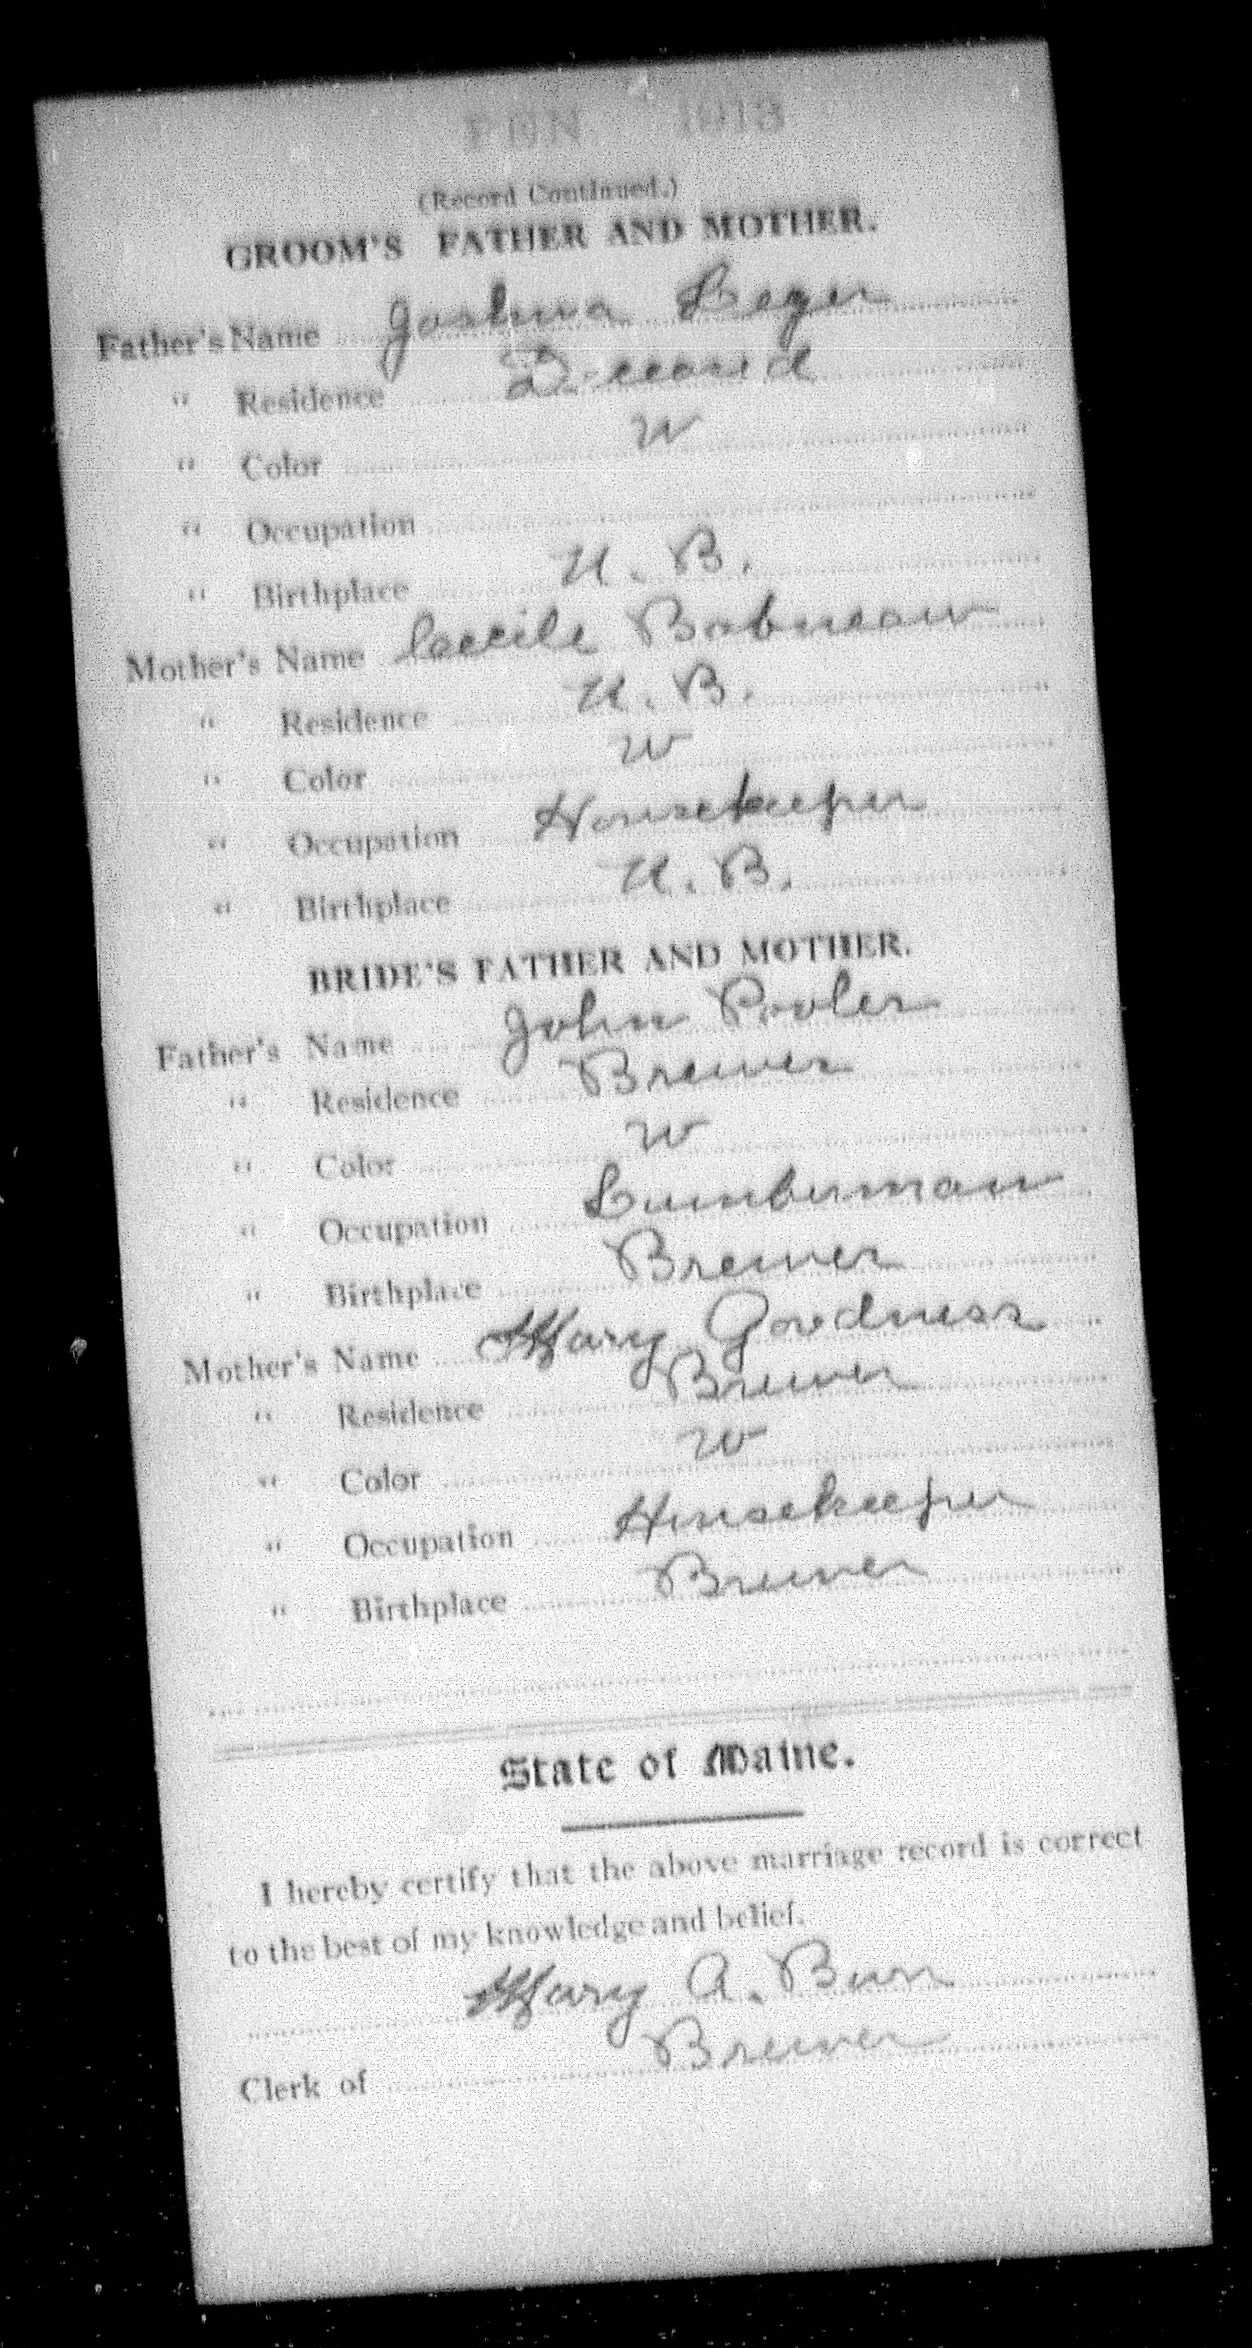 PEN 1913
(Record Continued.)
GROOM'S FATHER AND MOTHER.
Father's Name Joshua Leger
" Residence Deceased
" Color W
" Occupation
" Birthplace N. B.
Mother's Name Cecile Babneau
" Residence N. B.
" Color W
" Occupation Housekeeper
" Birthplace N. B.
BRIDE'S FATHER AND MOTHER.
Father's Name John Pooler
" Residence Brewer
" Color W
" Occupation Lumberman
" Birthplace Brewer
Mother's Name Mary Goodness
" Residence Brewer
" Color W
" Occupation Housekeeper
" Birthplace Brewer
State of Maine.
I hereby certify that the above marriage record is correct
to the best of my knowledge and belief.
Mary A. Burr
Clerk of Brewer